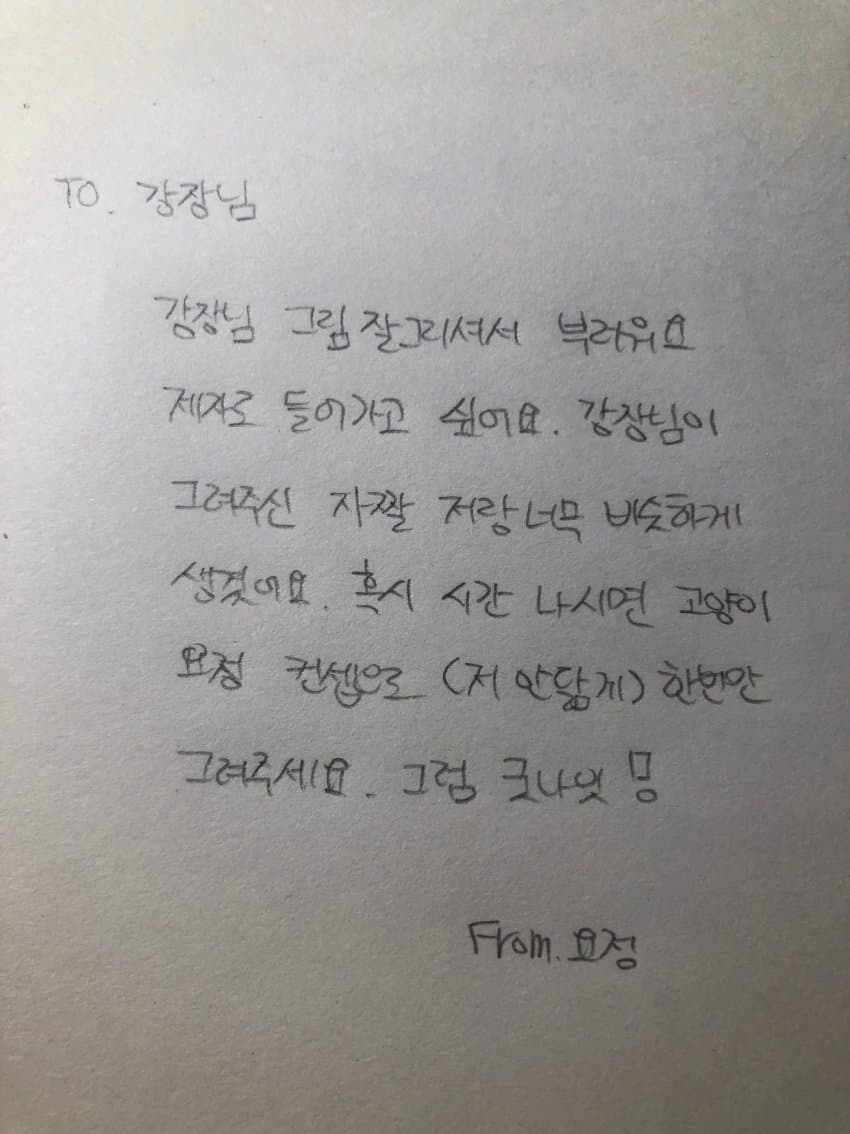 TO. 강장님
강장님 그림 잘그리셔서 부러워요
제자로 들어가고 싶어요. 강장님이
그려주신 자짤 저랑 너무 비슷하게
생겼어요. 혹시 시간 나시면 고양이
요정 컨셉으로 (저 안닮게) 한번만
그려주세요. 그럼 굿나잇 뮹
From. 요정